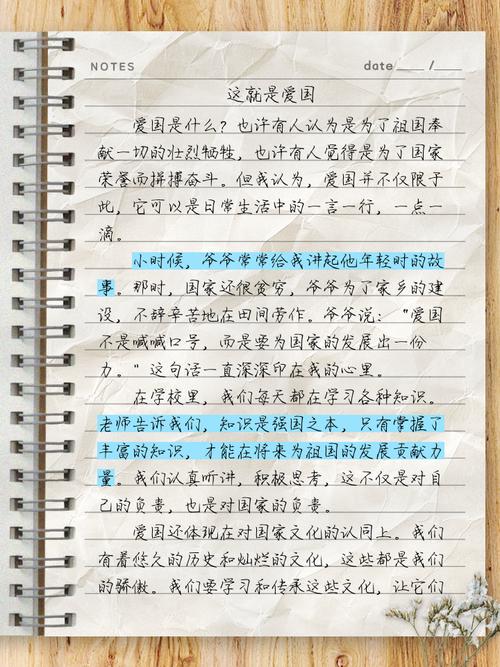 NOTES
date____/____
这就是爱国
爱国是什么？也许有人认为是为了祖国奉
献一切的壮烈牺牲，也许有人觉得是为了国家
荣誉而拼搏奋斗。但我认为，爱国并不仅限于
此，它可以是日常生活中的一言一行，一点一
滴。
小时候，爷爷常常给我讲起他年轻时的故
事。那时，国家还很贫穷，爷爷为了家乡的建
设，不辞辛苦地在田间劳作。爷爷说：“爱国
不是喊喊口号，而是要为国家的发展出一份
力。”这句话一直深深印在我的心里。
在学校里，我们每天都在学习各种知识。
老师告诉我们，知识是强国之本，只有掌握了
丰富的知识，才能在将来为祖国的发展贡献力
量。我们认真听讲，积极思考，这不仅是对自
己的负责，也是对国家的负责。
爱国还体现在对国家文化的认同上。我们
有着悠久的历史和灿烂的文化，这些都是我们
的骄傲。我们要学习和传承这些文化，让它们